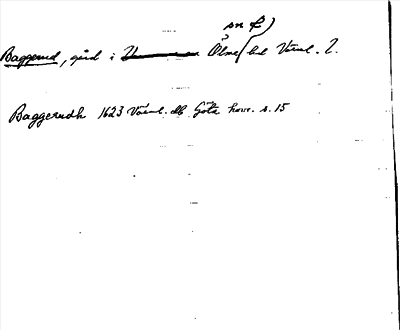 sn &)
Baggerud, gård i Ölme hd Värml. l.
Baggerudh 1623 Värml. db Göta hovr. s. 15